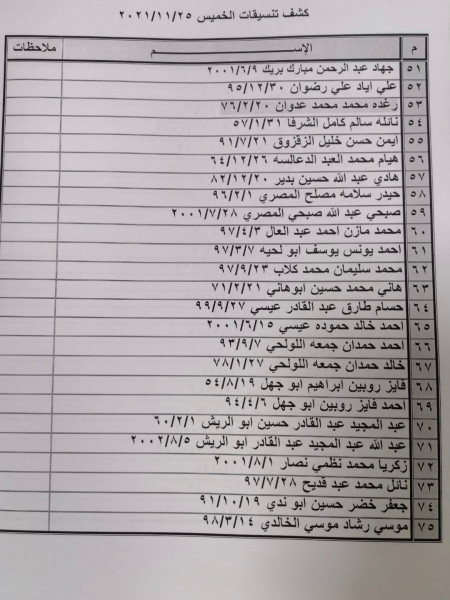 كشف تنسيقات الخميس ٢٠٢١/١١/٢٥
م الإســـــــم ملاحظات
٥١ جهاد عبد الرحمن مبارك بريك ٢٠٠١/٦/٩
٥٢ علي اياد علي رضوان ٩٥/١٢/٣٠
٥٣ رغده محمد محمد عدوان ٧٦/٢/٢٠
٥٤ نائله سالم كامل الشرفا ٥٧/١/٣١
٥٥ ايمن حسن خليل الزقزوق ٩١/٧/٢١
٥٦ هيام محمد العبد الدعالسه ٦٤/١٢/٢٦
٥٧ هادي عبد الله حسين بدير ٨٢/١٢/٢٠
٥٨ حيدر سلامه مصلح المصري ٩٦/٢/١
٥٩ صبحي عبد الله صبحي المصري ٢٠٠١/٧/٢٨
٦٠ محمد مازن احمد عبد العال ٩٧/٤/٣
٦١ احمد يونس يوسف ابو لحيه ٩٧/٣/٧
٦٢ محمد سليمان محمد كلاب ٩٧/٩/٢٣
٦٣ هاني محمد حسين ابوهاني ٧١/٢/٢١
٦٤ حسام طارق عبد القادر عيسي ٩٩/٩/٢٧
٦٥ احمد خالد حموده عيسي ٢٠٠١/٦/١٥
٦٦ احمد حمدان جمعه اللولحي ٩٣/٩/٧
٦٧ خالد حمدان جمعه اللولحي ٧٨/١/٢٧
٦٨ فايز روبين ابراهيم ابو جهل ٥٤/٨/١٩
٦٩ احمد فايز روبين ابو جهل ٩٤/٤/٦
٧٠ عبد المجيد عبد القادر حسين ابو الريش ٦٠/٢/١
٧١ عبد الله عبد المجيد عبد القادر ابو الريش ٢٠٠٢/٨/٥
٧٢ زكريا محمد نظمي نصار ٢٠٠١/٨/١
٧٣ نائل محمد عبد قديح ٩٧/٧/٢٨
٧٤ جعفر خضر حسين ابو ندي ٩١/١٠/١٩
٧٥ موسي رشاد موسي الخالدي ٩٨/٣/١٤